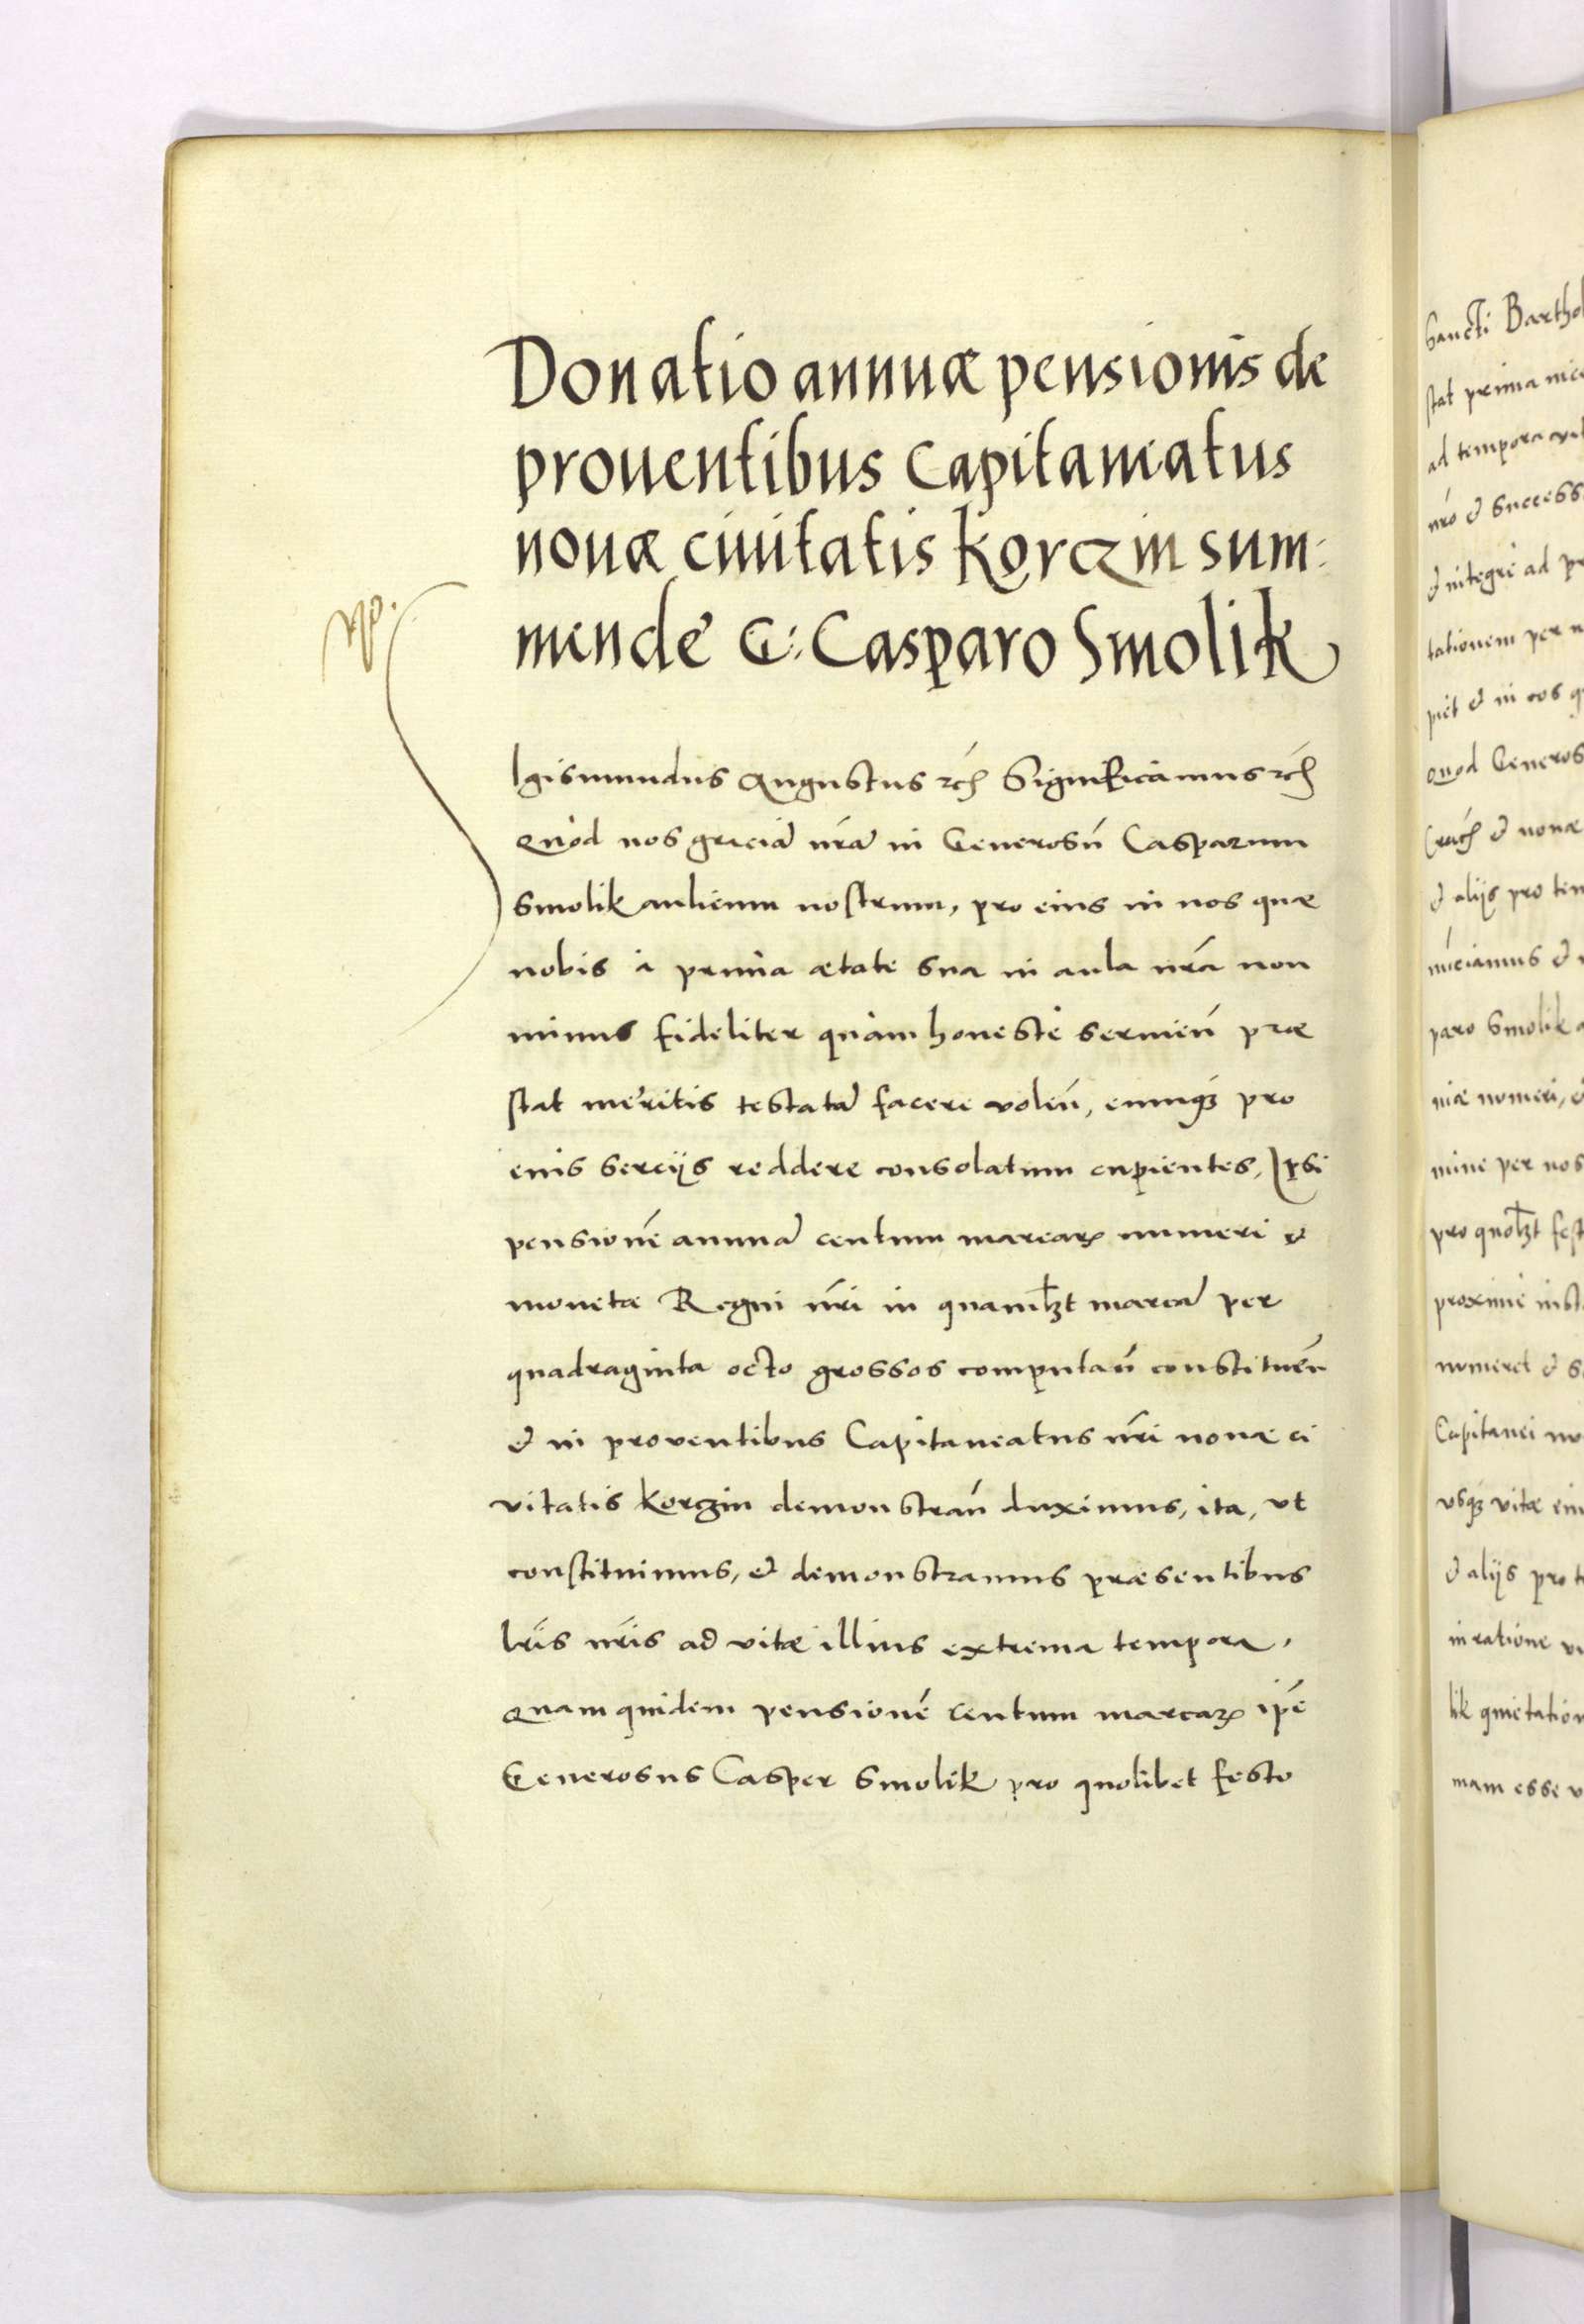 Donatio annuæ pensionis de
prouentibus Capitaneatus
nouæ ciuitatis Korczin sum:
mendè G: Casparo Smolik
Igismundus Augustus rc̃ Significamus rc̃
Quòd nos graciã nr̃ã in Generosũ Casparum
Smolik aulicum nostrum, pro eius in nos quæ
nobis à prima ætate sua in aula nr̃a non
minus fideliter quàm honestè seruieñ præ
stat meritis testatã facere voleñ, eumq3 pro
eius seruijs reddere consolatum cupientes, Ipsi
pensionẽ annuã centum marcarꝝ numeri &
monetæ Regni nr̃i in quaml3t marcã per
quadraginta octo grossos computañ constitueñ
& in proventibus Capitaneatus nr̃i nouæ ci
vitatis Korczin demonstrañ duximus, ita, vt
constituimus, & demonstramus præsentibus
lr̃is nr̃is ad vitæ illius extrema tempora,
Quam quidem pensionẽ centum marcarꝝ ip̃e
Generosus Casper Smolik pro quolibet festo
Sancti Barthol
ad tempora
nr̃o & success
& integrè ad
tationem per
& in eos
Quod Generos
& nouæ
& alijs pro
paro Smolik
niæ numeri,
per nos
pro quol3t fest
Capitanei
vsq3 vitæ
& alijs pro
in ratione
lik quietation
mam esse